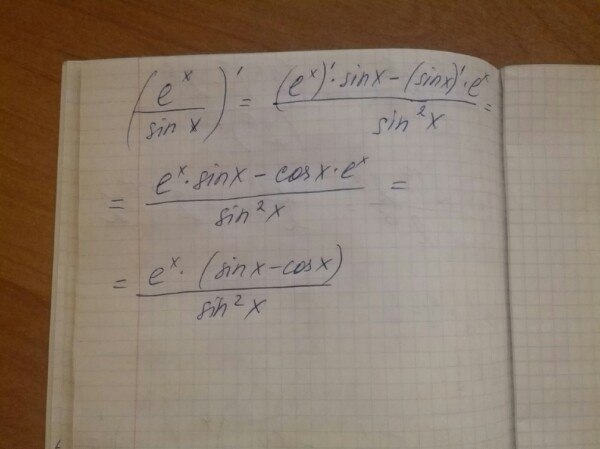 (e^x / sin x)' = ((e^x)' · sin x − (sin x)' · e^x) / sin^2 x =
= (e^x · sin x − cos x · e^x) / sin^2 x =
= (e^x · (sin x − cos x)) / sin^2 x